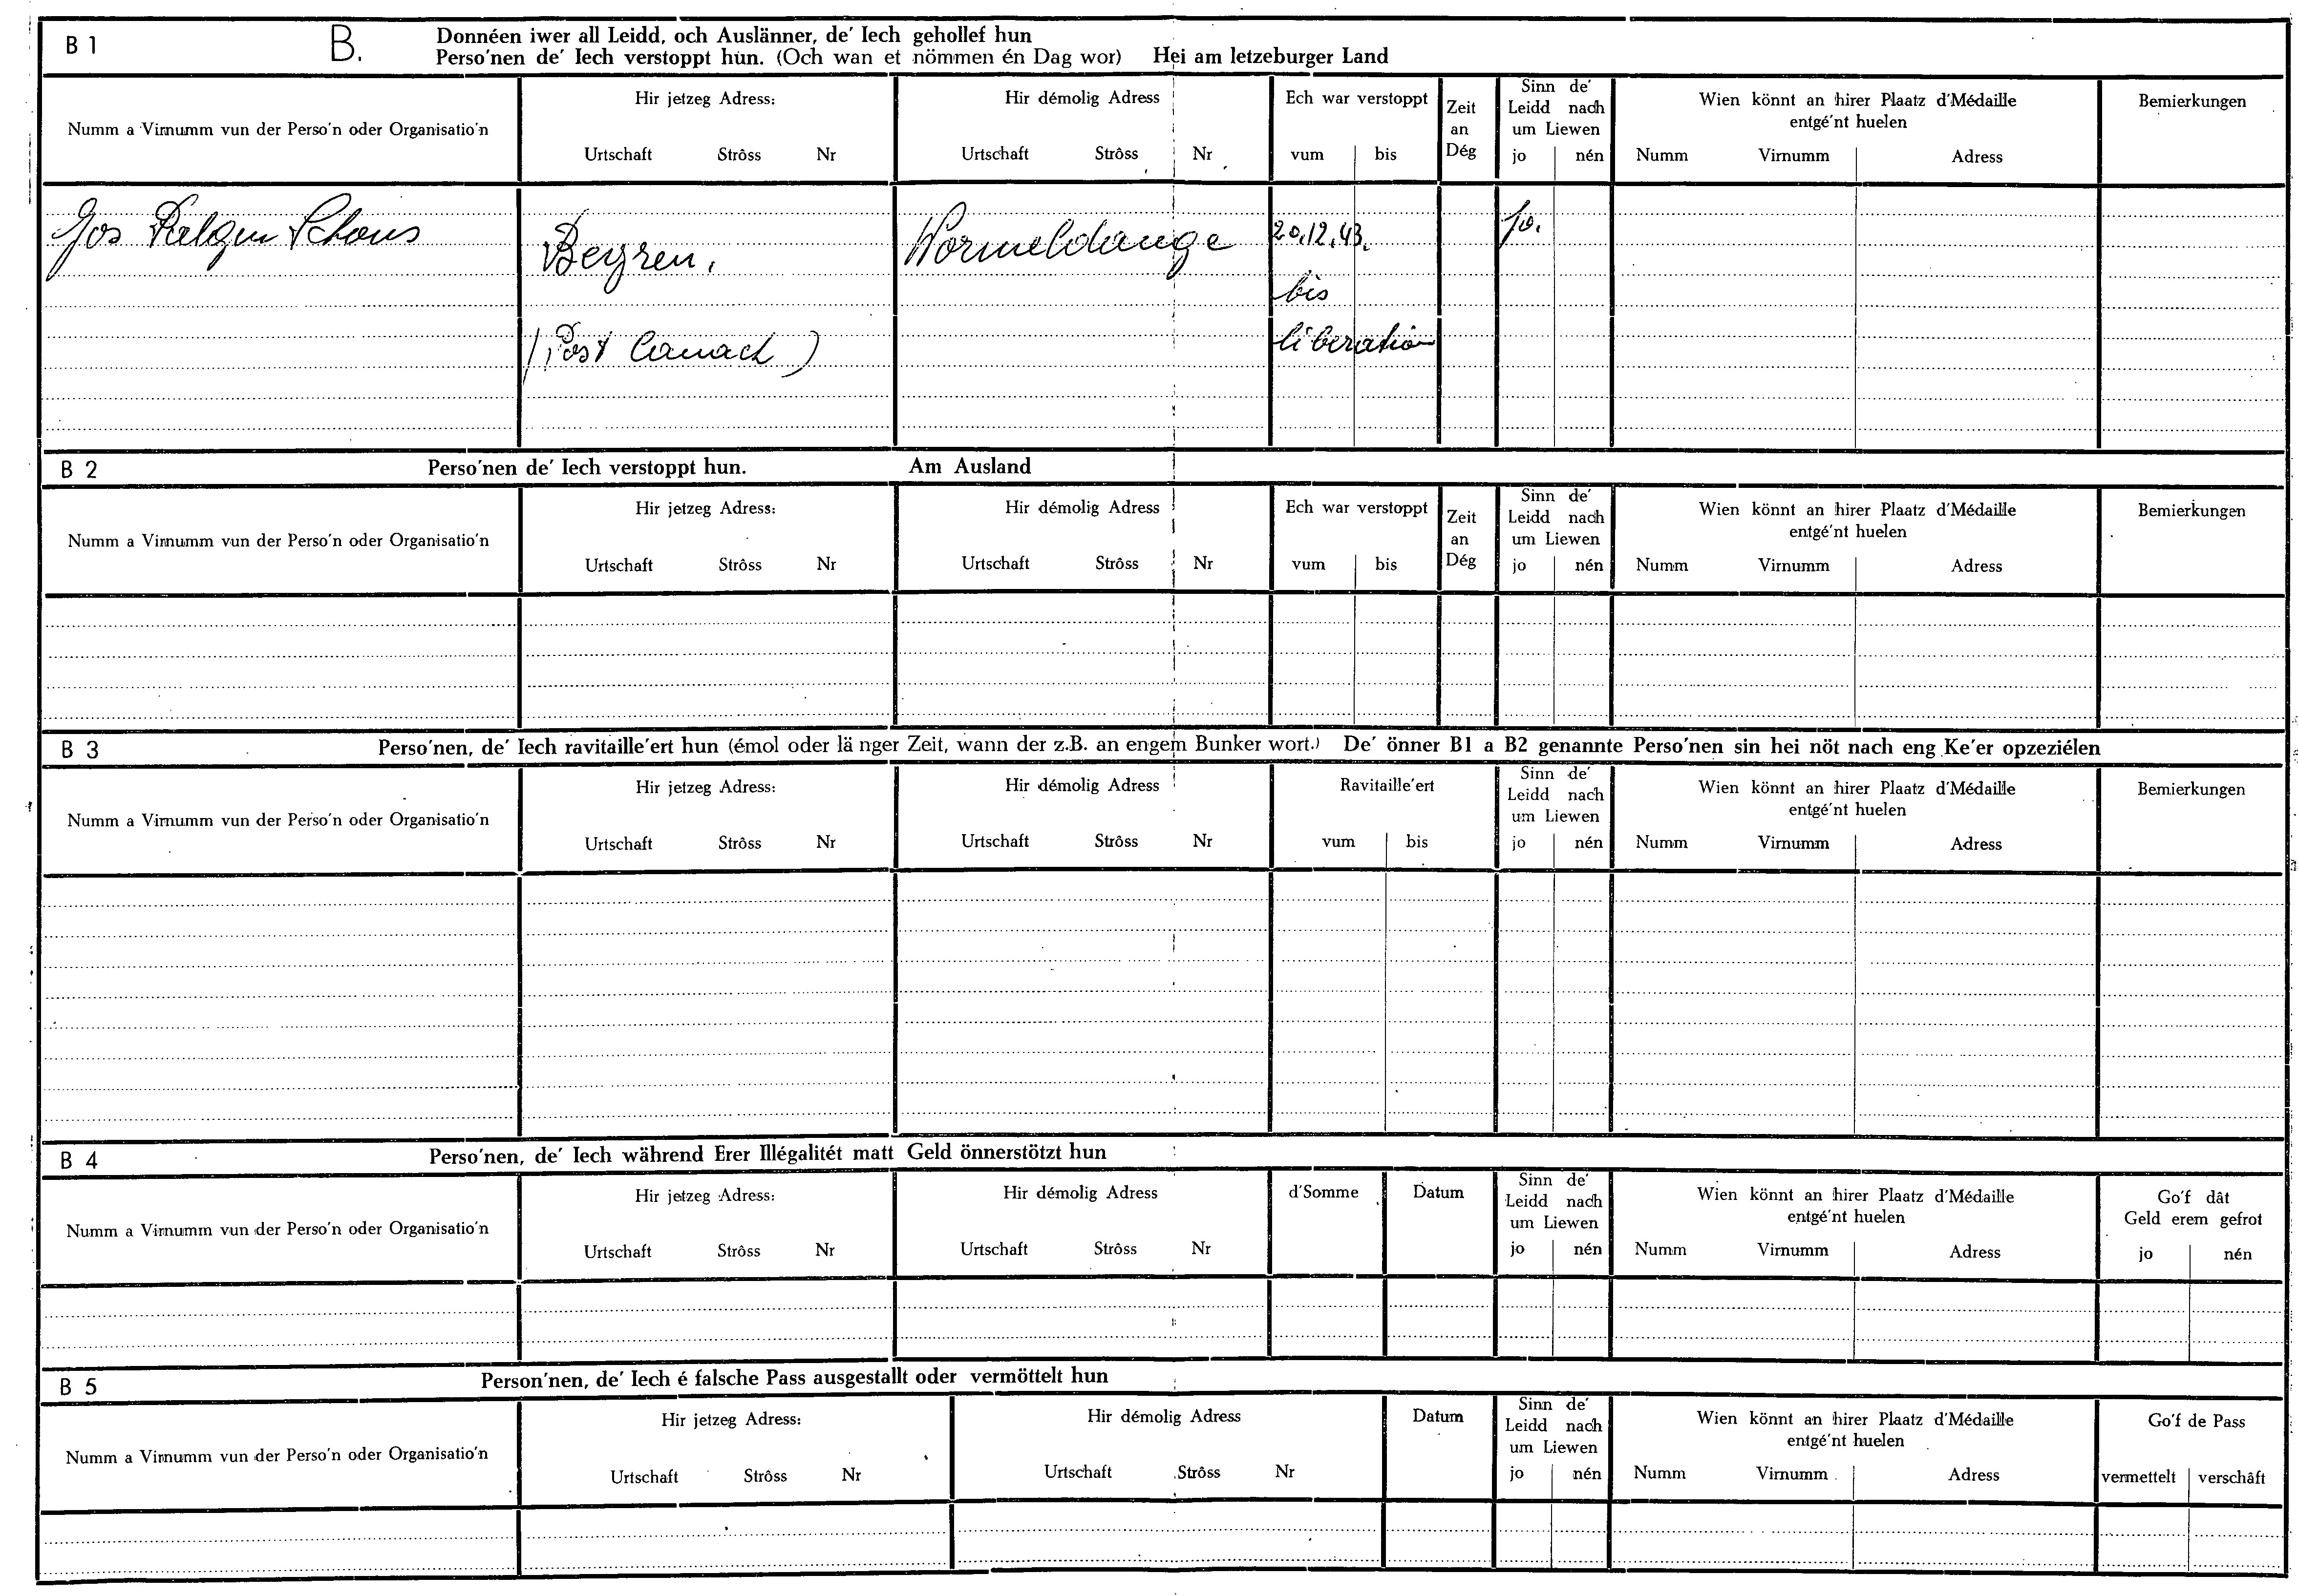 B 1 B. Donnéen iwer all Leidd, och Auslänner, de' Iech gehollef hun
Perso'nen de' Iech verstoppt hun. (Och wan et nömmen én Dag wor) Hei am letzeburger Land
Numm a Virnumm vun der Perso'n oder Organisatio'n
Hir jetzeg Adress:
Urtschaft Strôss Nr
Hir démolig Adress
Urtschaft Strôss Nr
Ech war verstoppt
vum bis
Zeit
an
Dég
Sinn de'
Leidd nach
um Liewen
jo nén
Wien könnt an hirer Plaatz d'Médaille
entgé'nt huelen
Numm Virnumm Adress
Bemierkungen
Jos Schons
Beyren.
(Post Canach)
Wormeldange
20.12.43.
bis
liberation
jo.
B 2 Perso'nen de' Iech verstoppt hun. Am Ausland
Numm a Virnumm vun der Perso'n oder Organisatio'n
Hir jetzeg Adress:
Urtschaft Strôss Nr
Hir démolig Adress
Urtschaft Strôss Nr
Ech war verstoppt
vum bis
Zeit
an
Dég
Sinn de'
Leidd nach
um Liewen
jo nén
Wien könnt an hirer Plaatz d'Médaille
entgé'nt huelen
Numm Virnumm Adress
Bemierkungen
B 3 Perso'nen, de' Iech ravitaille'ert hun (émol oder länger Zeit, wann der z.B. an engem Bunker wort.) De' önner B1 a B2 genannte Perso'nen sin hei nöt nach eng Ke'er opzeziélen
Numm a Virnumm vun der Perso'n oder Organisatio'n
Hir jetzeg Adress:
Urtschaft Strôss Nr
Hir démolig Adress
Urtschaft Strôss Nr
Ravitaille'ert
vum bis
Sinn de'
Leidd nach
um Liewen
jo nén
Wien könnt an hirer Plaatz d'Médaille
entgé'nt huelen
Numm Virnumm Adress
Bemierkungen
B 4 Perso'nen, de' Iech während Erer Illégalitét matt Geld önnerstötzt hun
Numm a Virnumm vun der Perso'n oder Organisatio'n
Hir jetzeg Adress:
Urtschaft Strôss Nr
Hir démolig Adress
Urtschaft Strôss Nr
d'Somme
Datum
Sinn de'
Leidd nach
um Liewen
jo nén
Wien könnt an hirer Plaatz d'Médaille
entgé'nt huelen
Numm Virnumm Adress
Go'f dât
Geld erem gefrot
jo nén
B 5 Person'nen, de' Iech é falsche Pass ausgestallt oder vermöttelt hun
Numm a Virnumm vun der Perso'n oder Organisatio'n
Hir jetzeg Adress:
Urtschaft Strôss Nr
Hir démolig Adress
Urtschaft Strôss Nr
Datum
Sinn de'
Leidd nach
um Liewen
jo nén
Wien könnt an hirer Plaatz d'Médaille
entgé'nt huelen
Numm Virnumm Adress
Go'f de Pass
vermettelt verschâft